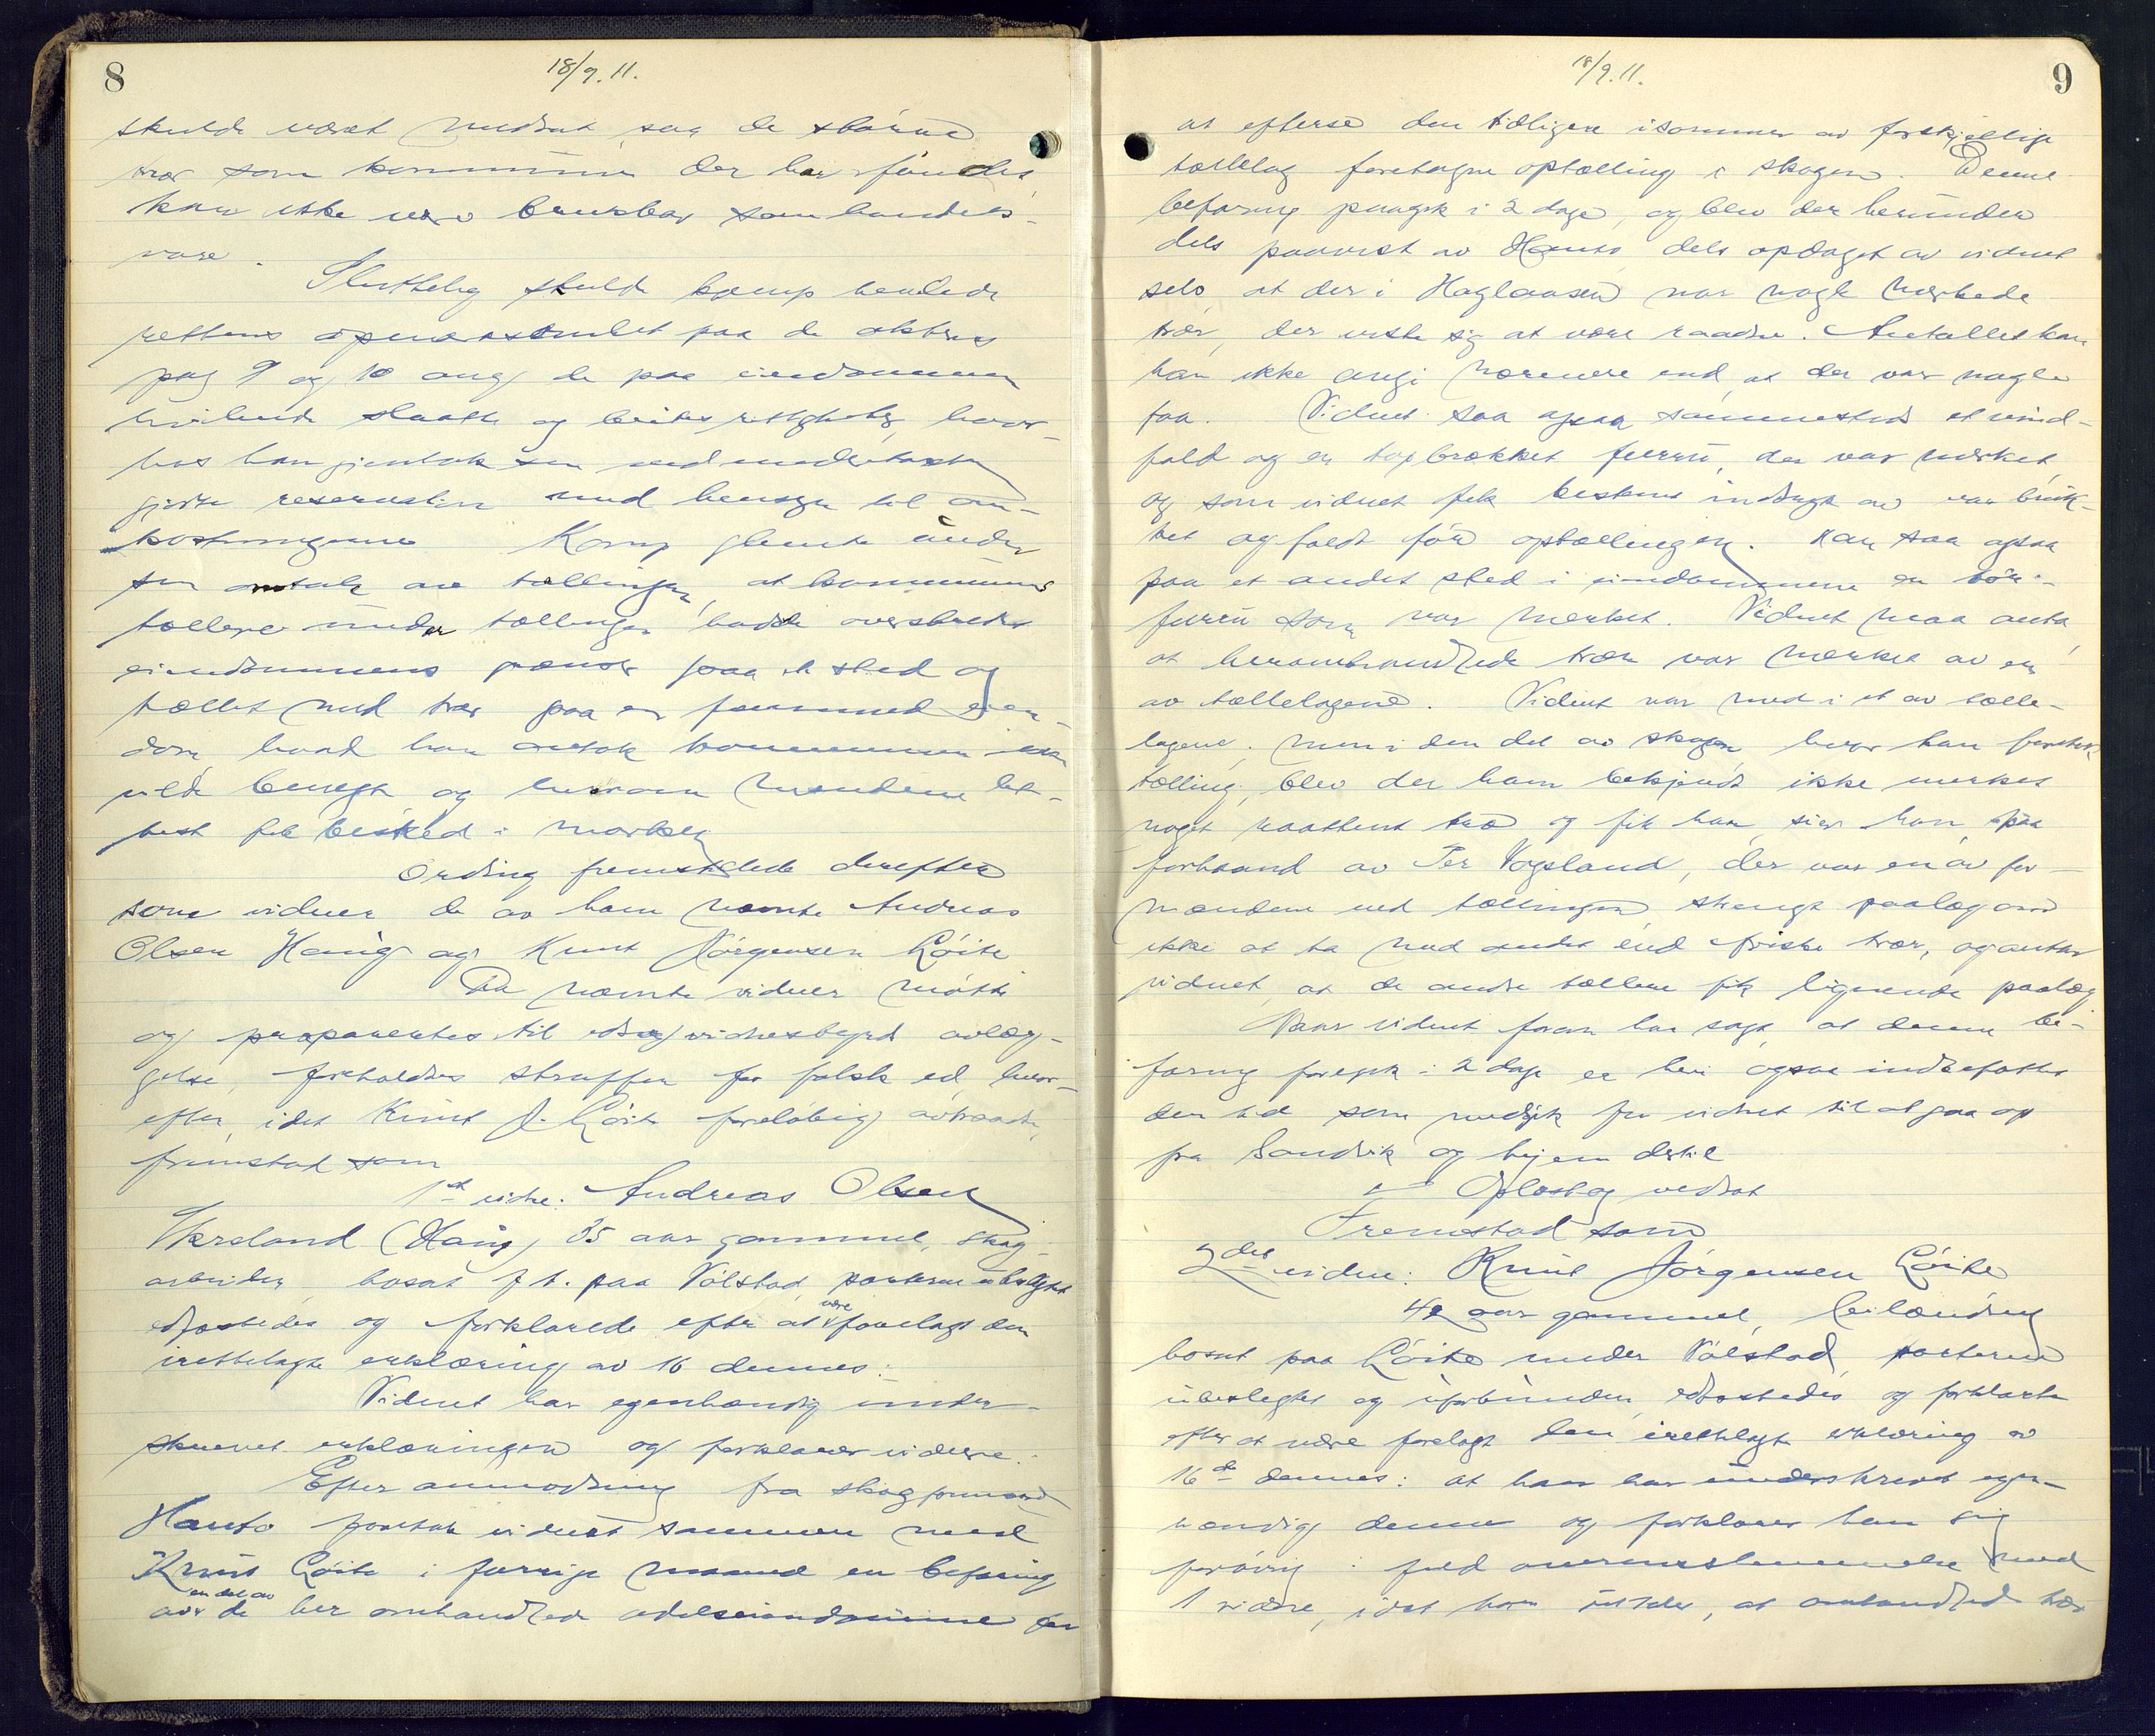 8
18/9. 11.
skulde været medsat saa de større
trær som kommunen der har fundet
kan ikke være brukbar som handels-
vare.
Sluttelig skulde Kamp henlede
rettens opmerksomhet paa de aktens
pag 9 og 10 ang de paa eiendommen
hvilende slaatte og beitesrettigheter, hvor-
hos han gjentok sin ved undertakst
gjorte reservation med hensyn til om-
kostningerne Kamp glemte under
sin omtale av tællingen, at kommunens
tællere under tællingen hadde overskredet
eiendommens grænse paa et sted og
tællet med trær paa en fremmed eien-
dom, hvad han antok kommunen ikke
vilde benegte og hvorom mændene let-
test fik besked i marken
Ording fremstillede derefter
som vidner de av ham nævnte Andreas
Olsen Haug og Knut Jörgensen Löite
De nævnte vidner møtte
og præparertes til ed og vidnesbyrds avlæg-
gelse, foreholdtes straffen for falsk ed, hvor-
efter, idet Knut J. Löite foreløbig avtraadte,
fremstod som
1st vidne: Andreas Olsen
Skreland (Haug) 35 aar gammel, skog-
arbeider, bosat f. t. paa Völstad, parterne ubeslegtet
edfæstedes og forklarede efter at være forelagt den
irettelagte erklæring av 16 dennes:
Vidnet har egenhændig under-
skrevet erklæringen og forklarer videre:
Efter anmodning fra skogformand
Hauto foretok vidnet sammen med
Knut Löite i forrige maaned en befaring
av en del av de her omhandlede odelseiendomme for
9
18/9. 11.
at efterse den tidligere isommer av forskjellige
tællelag foretagne optælling i skogen. Denne
befaring paagik i 2 dage, og blev der herunder
dels paavist av Hauto dels opdaget av vidnet
selv at der i Haglaasen var nogle merkede
trær, der viste sig at være raadne. Antallet kan
han ikke angi nærmere end, at der var nogle
faa. Vidnet saa ogsaa sammesteds et vind-
fald og en topbrækket furru, der var merket
og som vidnet fik bestemt indtryk av var bræk-
ket og faldt før optællingen. Han saa ogsaa
paa et andet sted i eiendommene en tör-
furru som var merket. Vidnet maa anta
at heromhandlede trær var merket av en
av tællelagene. Vidnet var med i et av tælle-
lagene. Men i den del av skogen hvor han foretok
tælling, blev der ham bekjendt ikke merket
noget raattent træ og fik han, sier han, paa
forhaand av Per Vogsland, der var en av for-
mændene ved tællingen strengt paalæg om
ikke at ta med andet end friske trær, og antar
vidnet, at de andre tællere fik lignende paalæg
Naar vidnet foran har sagt at denne be-
faring foregik i 2 dage er heri ogsaa indbefattet
den tid som medgik for vidnet til at gaa op
fra Sandvik og hjem dertil
Oplæst og vedtat
Fremstod som
2det vidne: Knut Jörgensen Löite
42 aar gammel, leilænding
bosat paa Löite under Völstad, parterne
ubeslegtet og uforbunden edfæstedes og forklarte
efter at være forelagt den irettelagte erklæring av
16de dennes: at han har underskrevet egen-
hændig denne og forklarer han sig
forøvrig i fuld overensstemmelse med
1 vidne, idet han uttaler, at omhandlede trær